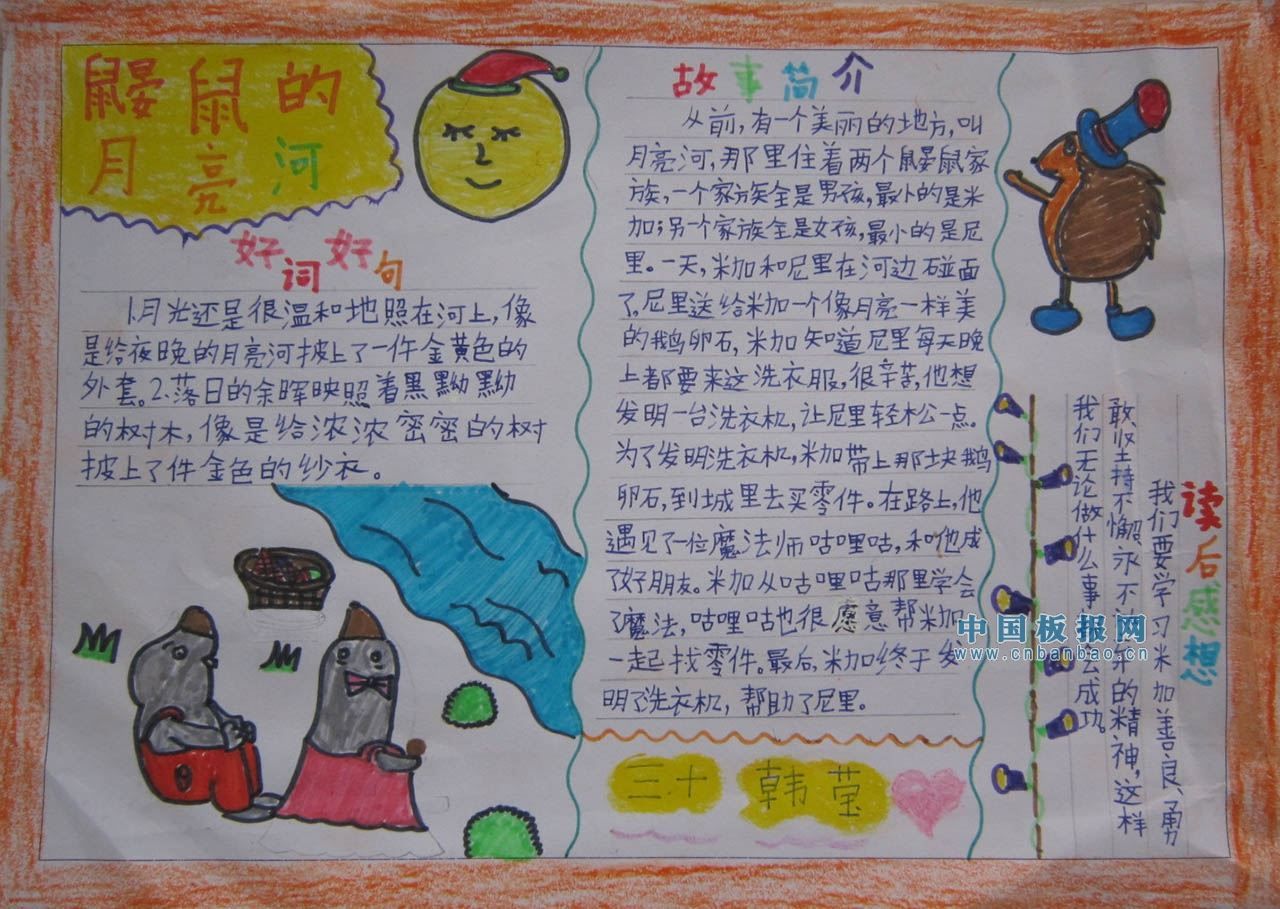 鼹鼠的
月亮河
好词好句
1.月光还是很温和地照在河上,像
是给夜晚的月亮河披上了一件金黄色的
外套。2.落日的余晖映照着黑黝黝
的树木,像是给浓浓密密的树
披上了件金色的纱衣。
故事简介
从前,有一个美丽的地方,叫
月亮河,那里住着两个鼹鼠家
族,一个家族全是男孩,最小的是米
加;另一个家族全是女孩,最小的是尼
里。一天,米加和尼里在河边碰面
了。尼里送给米加一个像月亮一样美
的鹅卵石,米加知道尼里每天晚
上都要来这洗衣服,很辛苦,他想
发明一台洗衣机,让尼里轻松一点。
为了发明洗衣机,米加带上那块鹅
卵石,到城里去买零件。在路上,他
遇见了一位魔法师咕哩咕,和他成
了好朋友。米加从咕哩咕那里学会
了魔法,咕哩咕也很愿意帮米加
一起找零件。最后,米加终于发
明了洗衣机,帮助了尼里。
三十 韩莹
读后感想
我们要学习米加善良、勇
敢坚持不懈、永不的精神,这样
我们无论做什么事会成功。
中国板报网
www.cnbanbao.cn